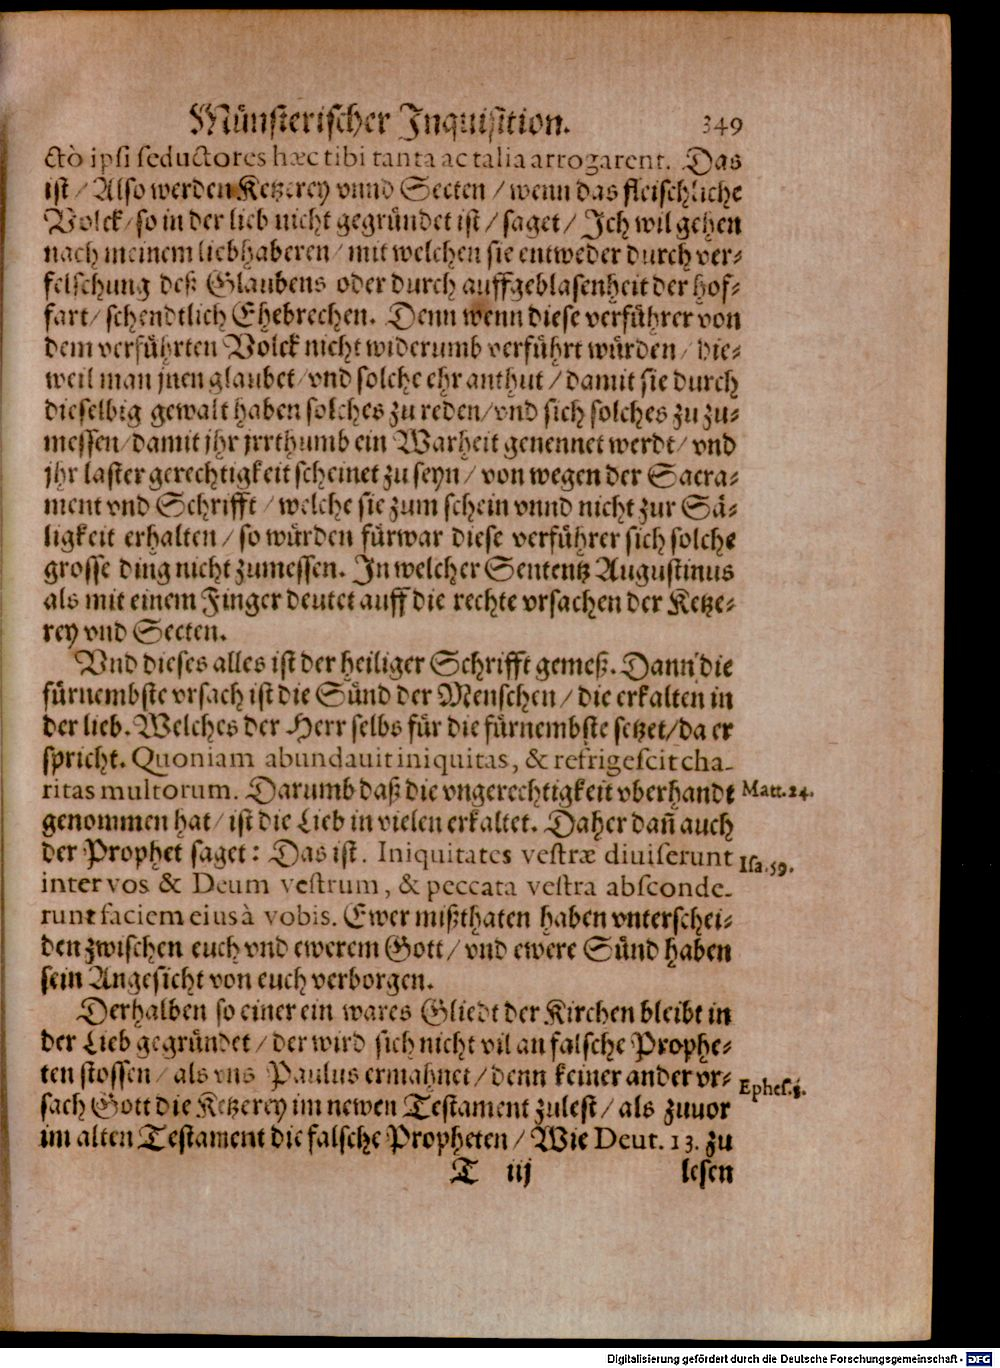 Münsterischer Inquisition. 349
ctò ipsi seductores hæc tibi tanta ac talia arrogarent. Das
ist / Also werden Ketzerey vnnd Secten / wenn das fleischliche
Volck / so in der lieb nicht gegründet ist / saget / Ich wil gehen
nach meinem liebhaberen / mit welchen sie entweder durch ver⸗
felschung deß Glaubens oder durch auffgeblasenheit der hof⸗
fart / schendtlich Ehebrechen. Denn wenn diese verführer von
dem verführten Volck nicht widerumb verführt würden / die⸗
weil man jnen glaubet / vnd solche ehr anthut / damit sie durch
dieselbig gewalt haben solches zu reden / vnd sich solches zu zu⸗
messen / damit jhr jrrthumb ein Warheit genennet werdt / vnd
jhr laster gerechtigkeit scheinet zu seyn / von wegen der Sacra⸗
ment vnd Schrifft / welche sie zum schein vnnd nicht zur Sä⸗
ligkeit erhalten / so würden fürwar diese verführer sich solche
grosse ding nicht zumessen. In welcher Sententz Augustinus
als mit einem Finger deutet auff die rechte vrsachen der Ketze⸗
rey vnd Secten.
Vnd dieses alles ist der heiliger Schrifft gemeß. Dann die
fürnembste vrsach ist die Sünd der Menschen / die erkalten in
der lieb. Welches der Herr selbs für die fürnembste setzet / da er
spricht. Quoniam abundauit iniquitas, & refrigescit cha-
ritas multorum. Darumb daß die vngerechtigkeit vberhandt Matt. 24.
genommen hat / ist die Lieb in vielen erkaltet. Daher dañ auch
der Prophet saget: Das ist. Iniquitates vestræ diuiserunt Isa. 59.
inter vos & Deum vestrum, & peccata vestra absconde-
runt faciem eius à vobis. Ewer mißthaten haben vnterschei⸗
den zwischen euch vnd ewerem Gott / vnd ewere Sünd haben
sein Angesicht von euch verborgen.
Derhalben so einer ein wares Gliedt der Kirchen bleibt in
der Lieb gegründet / der wird sich nicht vil an falsche Prophe⸗
ten stossen / als vns Paulus ermahnet / denn keiner ander vr⸗ Ephes.
sach Gott die Ketzerey im newen Testament zulest / als zuuor
im alten Testament die falsche Propheten / Wie Deut. 13. zu
T iij lesen
Digitalisierung gefördert durch die Deutsche Forschungsgemeinschaft - DFG